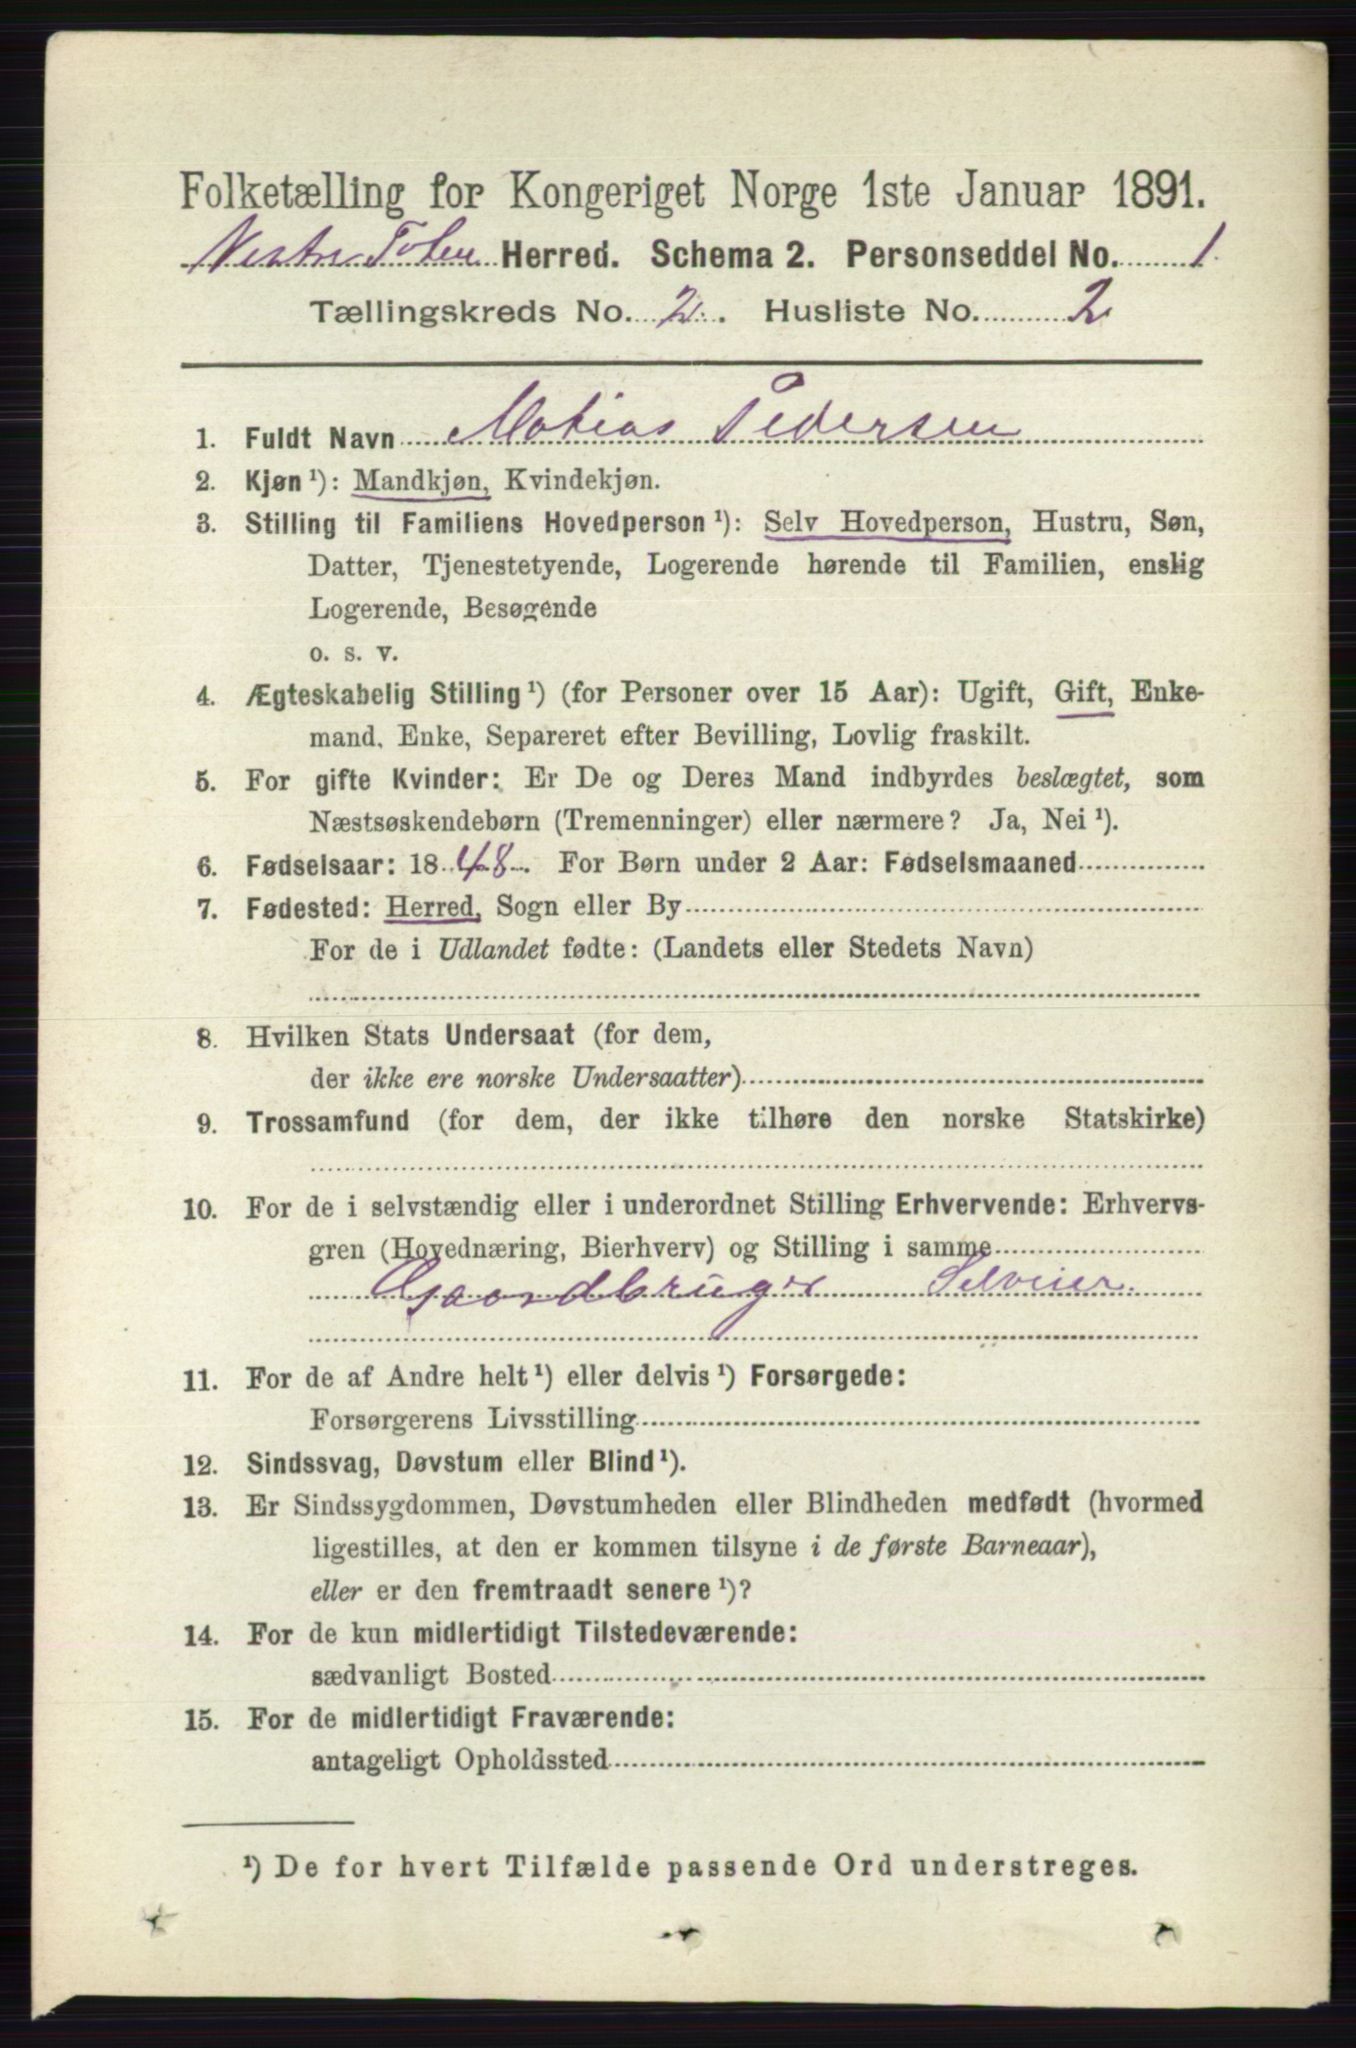 Folketælling for Kongeriget Norge 1ste Januar 1891.
Vestre Toten Herred. Schema 2. Personseddel No. 1
Tællingskreds No. 2. Husliste No. 2
1. Fuldt Navn Matias Pedersen
2. Kjøn ¹): Mandkjøn, Kvindekjøn.
3. Stilling til Familiens Hovedperson ¹): Selv Hovedperson, Hustru, Søn,
Datter, Tjenestetyende, Logerende hørende til Familien, enslig
Logerende, Besøgende
o. s. v.
4. Ægteskabelig Stilling ¹) (for Personer over 15 Aar): Ugift, Gift, Enke-
mand, Enke, Separeret efter Bevilling, Lovlig fraskilt.
5. For gifte Kvinder: Er De og Deres Mand indbyrdes beslægtet, som
Næstsøskendebørn (Tremenninger) eller nærmere? Ja, Nei ¹).
6. Fødselsaar: 1848. For Børn under 2 Aar: Fødselsmaaned
7. Fødested: Herred, Sogn eller By
For de i Udlandet fødte: (Landets eller Stedets Navn)
8. Hvilken Stats Undersaat (for dem,
der ikke ere norske Undersaatter)
9. Trossamfund (for dem, der ikke tilhøre den norske Statskirke)
10. For de i selvstændig eller i underordnet Stilling Erhvervende: Erhvervs-
gren (Hovednæring, Bierhverv) og Stilling i samme
Gaardbruger Selveier.
11. For de af Andre helt ¹) eller delvis ¹) Forsørgede:
Forsørgerens Livsstilling
12. Sindssvag, Døvstum eller Blind ¹).
13. Er Sindssygdommen, Døvstumheden eller Blindheden medfødt (hvormed
ligestilles, at den er kommen tilsyne i de første Barneaar),
eller er den fremtraadt senere ¹)?
14. For de kun midlertidigt Tilstedeværende:
sædvanligt Bosted
15. For de midlertidigt Fraværende:
antageligt Opholdssted
¹) De for hvert Tilfælde passende Ord understreges.